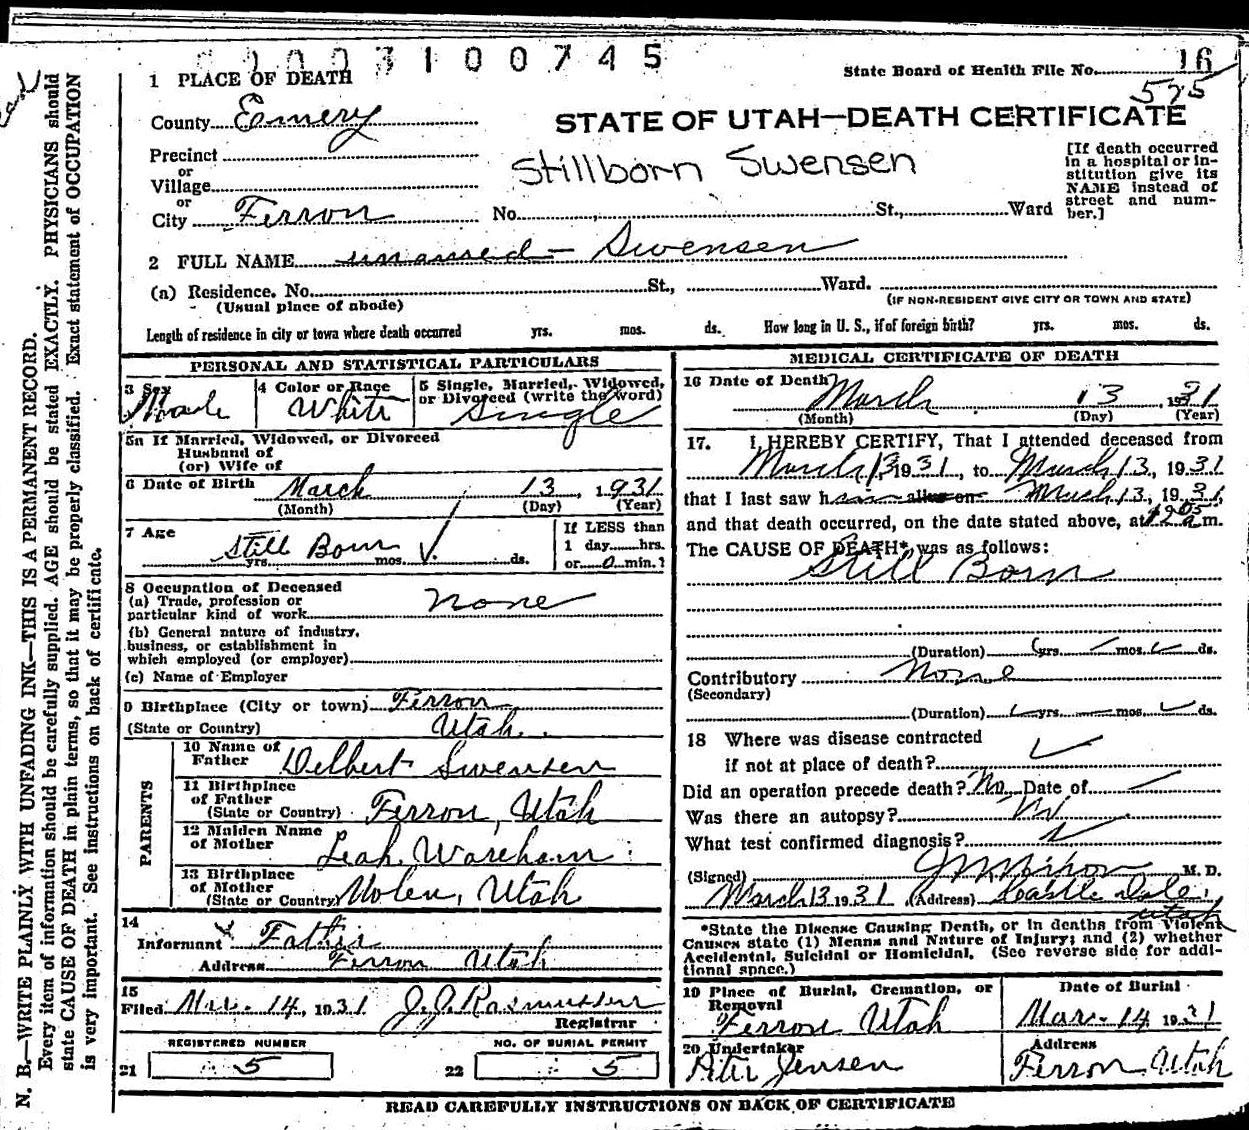 1003100745
1 PLACE OF DEATH
State Board of Health File No. 16
575
County Emery
STATE OF UTAH—DEATH CERTIFICATE
Precinct
or
Village
or
City Ferron No. St., Ward
Stillborn Swensen
[If death occurred
in a hospital or in-
stitution give its
NAME instead of
street and num-
ber.]
2 FULL NAME unnamed - Swensen
(a) Residence. No. St., Ward.
(Usual place of abode)
(IF NON-RESIDENT GIVE CITY OR TOWN AND STATE)
Length of residence in city or town where death occurred yrs. mos. ds. How long in U. S., if of foreign birth? yrs. mos. ds.
PERSONAL AND STATISTICAL PARTICULARS
3 Sex Male
4 Color or Race White
5 Single, Married, Widowed,
or Divorced (write the word)
Single
5a If Married, Widowed, or Divorced
Husband of
(or) Wife of
6 Date of Birth March 13, 1931
(Month) (Day) (Year)
7 Age
Still Born
yrs. mos. ds.
If LESS than
1 day hrs.
or 0 min.?
8 Occupation of Deceased
(a) Trade, profession or
particular kind of work none
(b) General nature of industry,
business, or establishment in
which employed (or employer)
(c) Name of Employer
9 Birthplace (City or town) Ferron
(State or Country) Utah.
PARENTS
10 Name of
Father Delbert Swensen
11 Birthplace
of Father
(State or Country) Ferron, Utah
12 Maiden Name
of Mother Leah Wareham
13 Birthplace
of Mother
(State or Country) Molen, Utah
14
Informant Father
Address Ferron Utah
15
Filed Mar. 14, 1931 J. J. Rasmussen
Registrar
REGISTERED NUMBER
21 5
NO. OF BURIAL PERMIT
22 5
MEDICAL CERTIFICATE OF DEATH
16 Date of Death March 13, 1931
(Month) (Day) (Year)
17. I HEREBY CERTIFY, That I attended deceased from
March, 13 1931, to March, 13, 1931
that I last saw him alive on March 13, 1931,
and that death occurred, on the date stated above, at m.
The CAUSE OF DEATH* was as follows:
Still Born
(Duration) yrs. mos. ds.
Contributory None
(Secondary)
(Duration) yrs. mos. ds.
18 Where was disease contracted
if not at place of death?
Did an operation precede death? No Date of
Was there an autopsy? No
What test confirmed diagnosis?
(Signed) M. D.
March 13 1931 (Address) Castle Dale,
Utah
*State the Disease Causing Death, or in deaths from Violent
Causes state (1) Means and Nature of Injury; and (2) whether
Accidental, Suicidal or Homicidal. (See reverse side for addi-
tional space.)
19 Place of Burial, Cremation, or
Removal
Ferron Utah
Date of Burial
Mar. 14 1931
20 Undertaker
Peter Jensen
Address
Ferron, Utah
READ CAREFULLY INSTRUCTIONS ON BACK OF CERTIFICATE
N. B.—WRITE PLAINLY WITH UNFADING INK—THIS IS A PERMANENT RECORD.
Every item of information should be carefully supplied. AGE should be stated EXACTLY. PHYSICIANS should
state CAUSE OF DEATH in plain terms, so that it may be properly classified. Exact statement of OCCUPATION
is very important. See instructions on back of certificate.